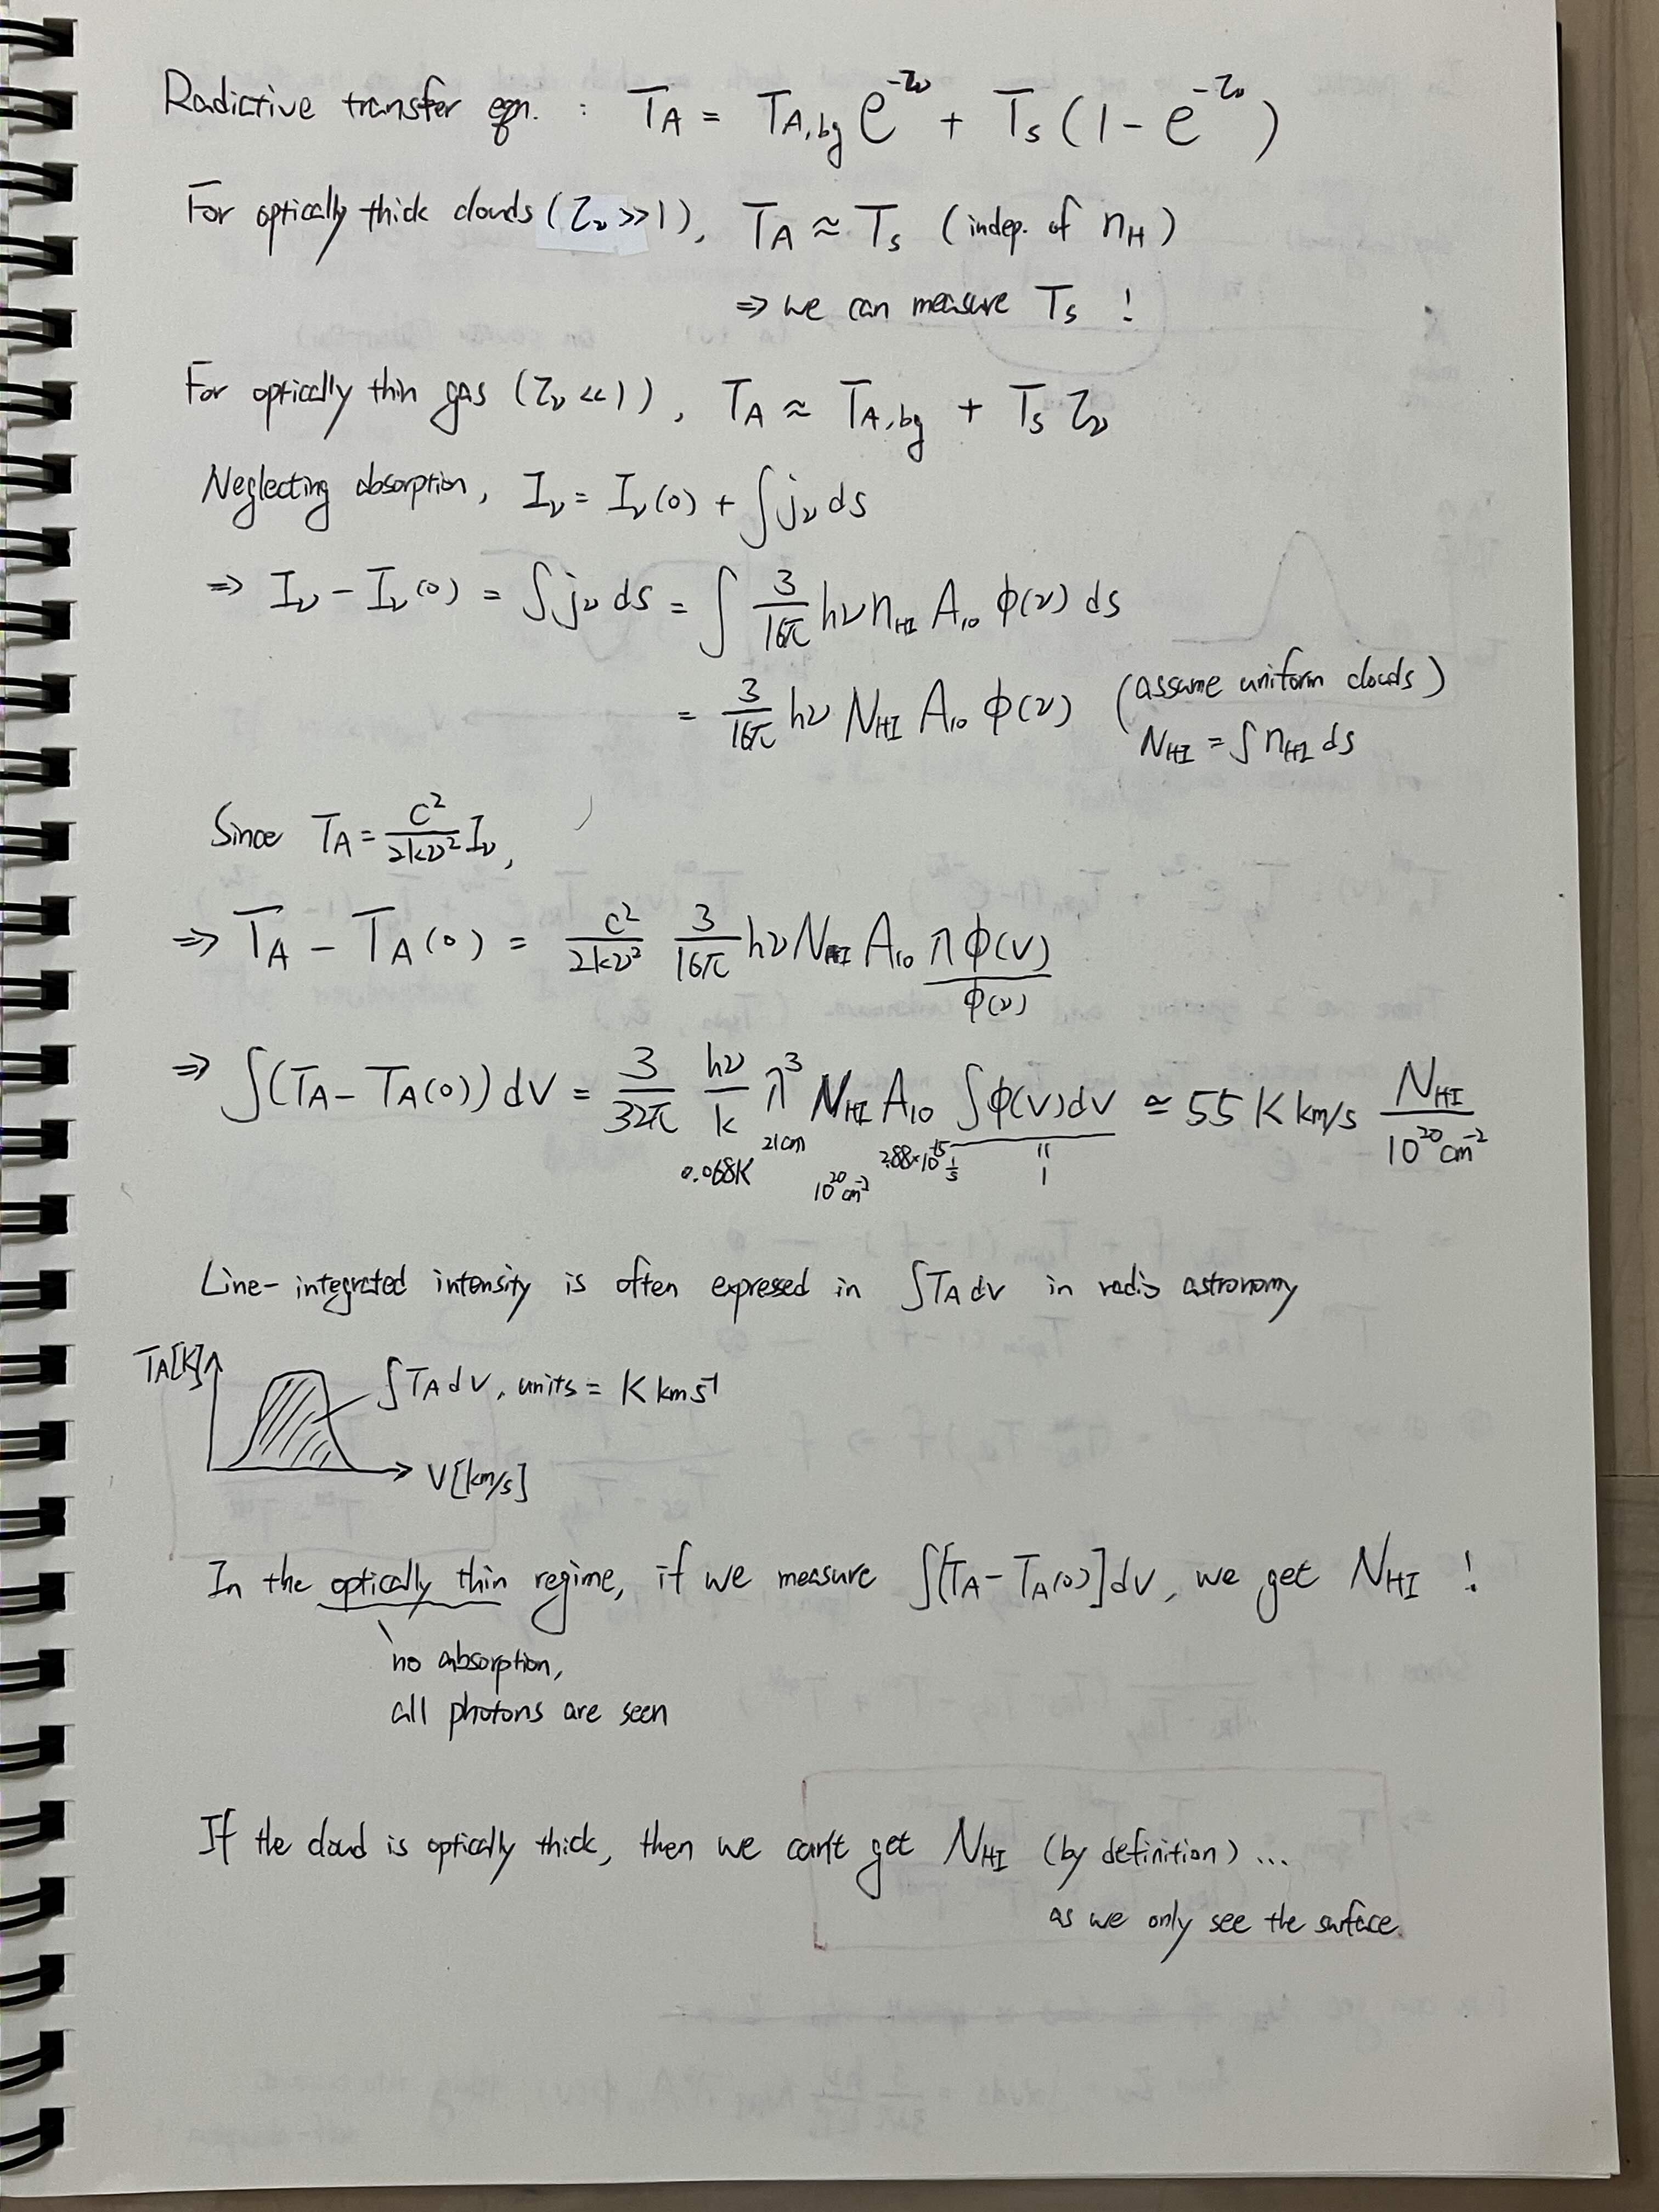 Radiative transfer eqn. : T_A = T_A,bg e^-τν + T_S (1 - e^-τν)
For optically thick clouds (τν >> 1), T_A ≈ T_S (indep. of n_H)
⇒ we can measure T_S !
For optically thin gas (τν << 1), T_A ≈ T_A,bg + T_S τν
Neglecting absorption, Iν = Iν(0) + ∫jν ds
⇒ Iν - Iν(0) = ∫jν ds = ∫ 3/16π hν n_HI A_10 φ(ν) ds
= 3/16π hν N_HI A_10 φ(ν) (assume uniform clouds)
N_HI = ∫ n_HI ds
Since T_A = c²/2kν² Iν,
⇒ T_A - T_A(0) = c²/2kν² 3/16π hν N_HI A_10 λ φ(V)
φ(ν)
⇒ ∫(T_A - T_A(0)) dV = 3/32π hν/k λ³ N_HI A_10 ∫φ(V)dV ≃ 55 K km/s N_HI/10^20 cm^-2
0.068K 21cm 10^20 cm^-2 2.88×10^-15 1/s = 1
Line-integrated intensity is often expressed in ∫T_A dv in radio astronomy
T_A[K]
∫T_A dV, units = K km s^-1
V[km/s]
In the optically thin regime, if we measure ∫[T_A - T_A(0)]dV, we get N_HI !
no absorption,
all photons are seen
If the cloud is optically thick, then we can't get N_HI (by definition) ...
as we only see the surface.